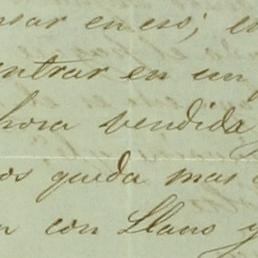 nsar en eso; es
entrar en un
hora vendida
os queda mas
n con Llano y